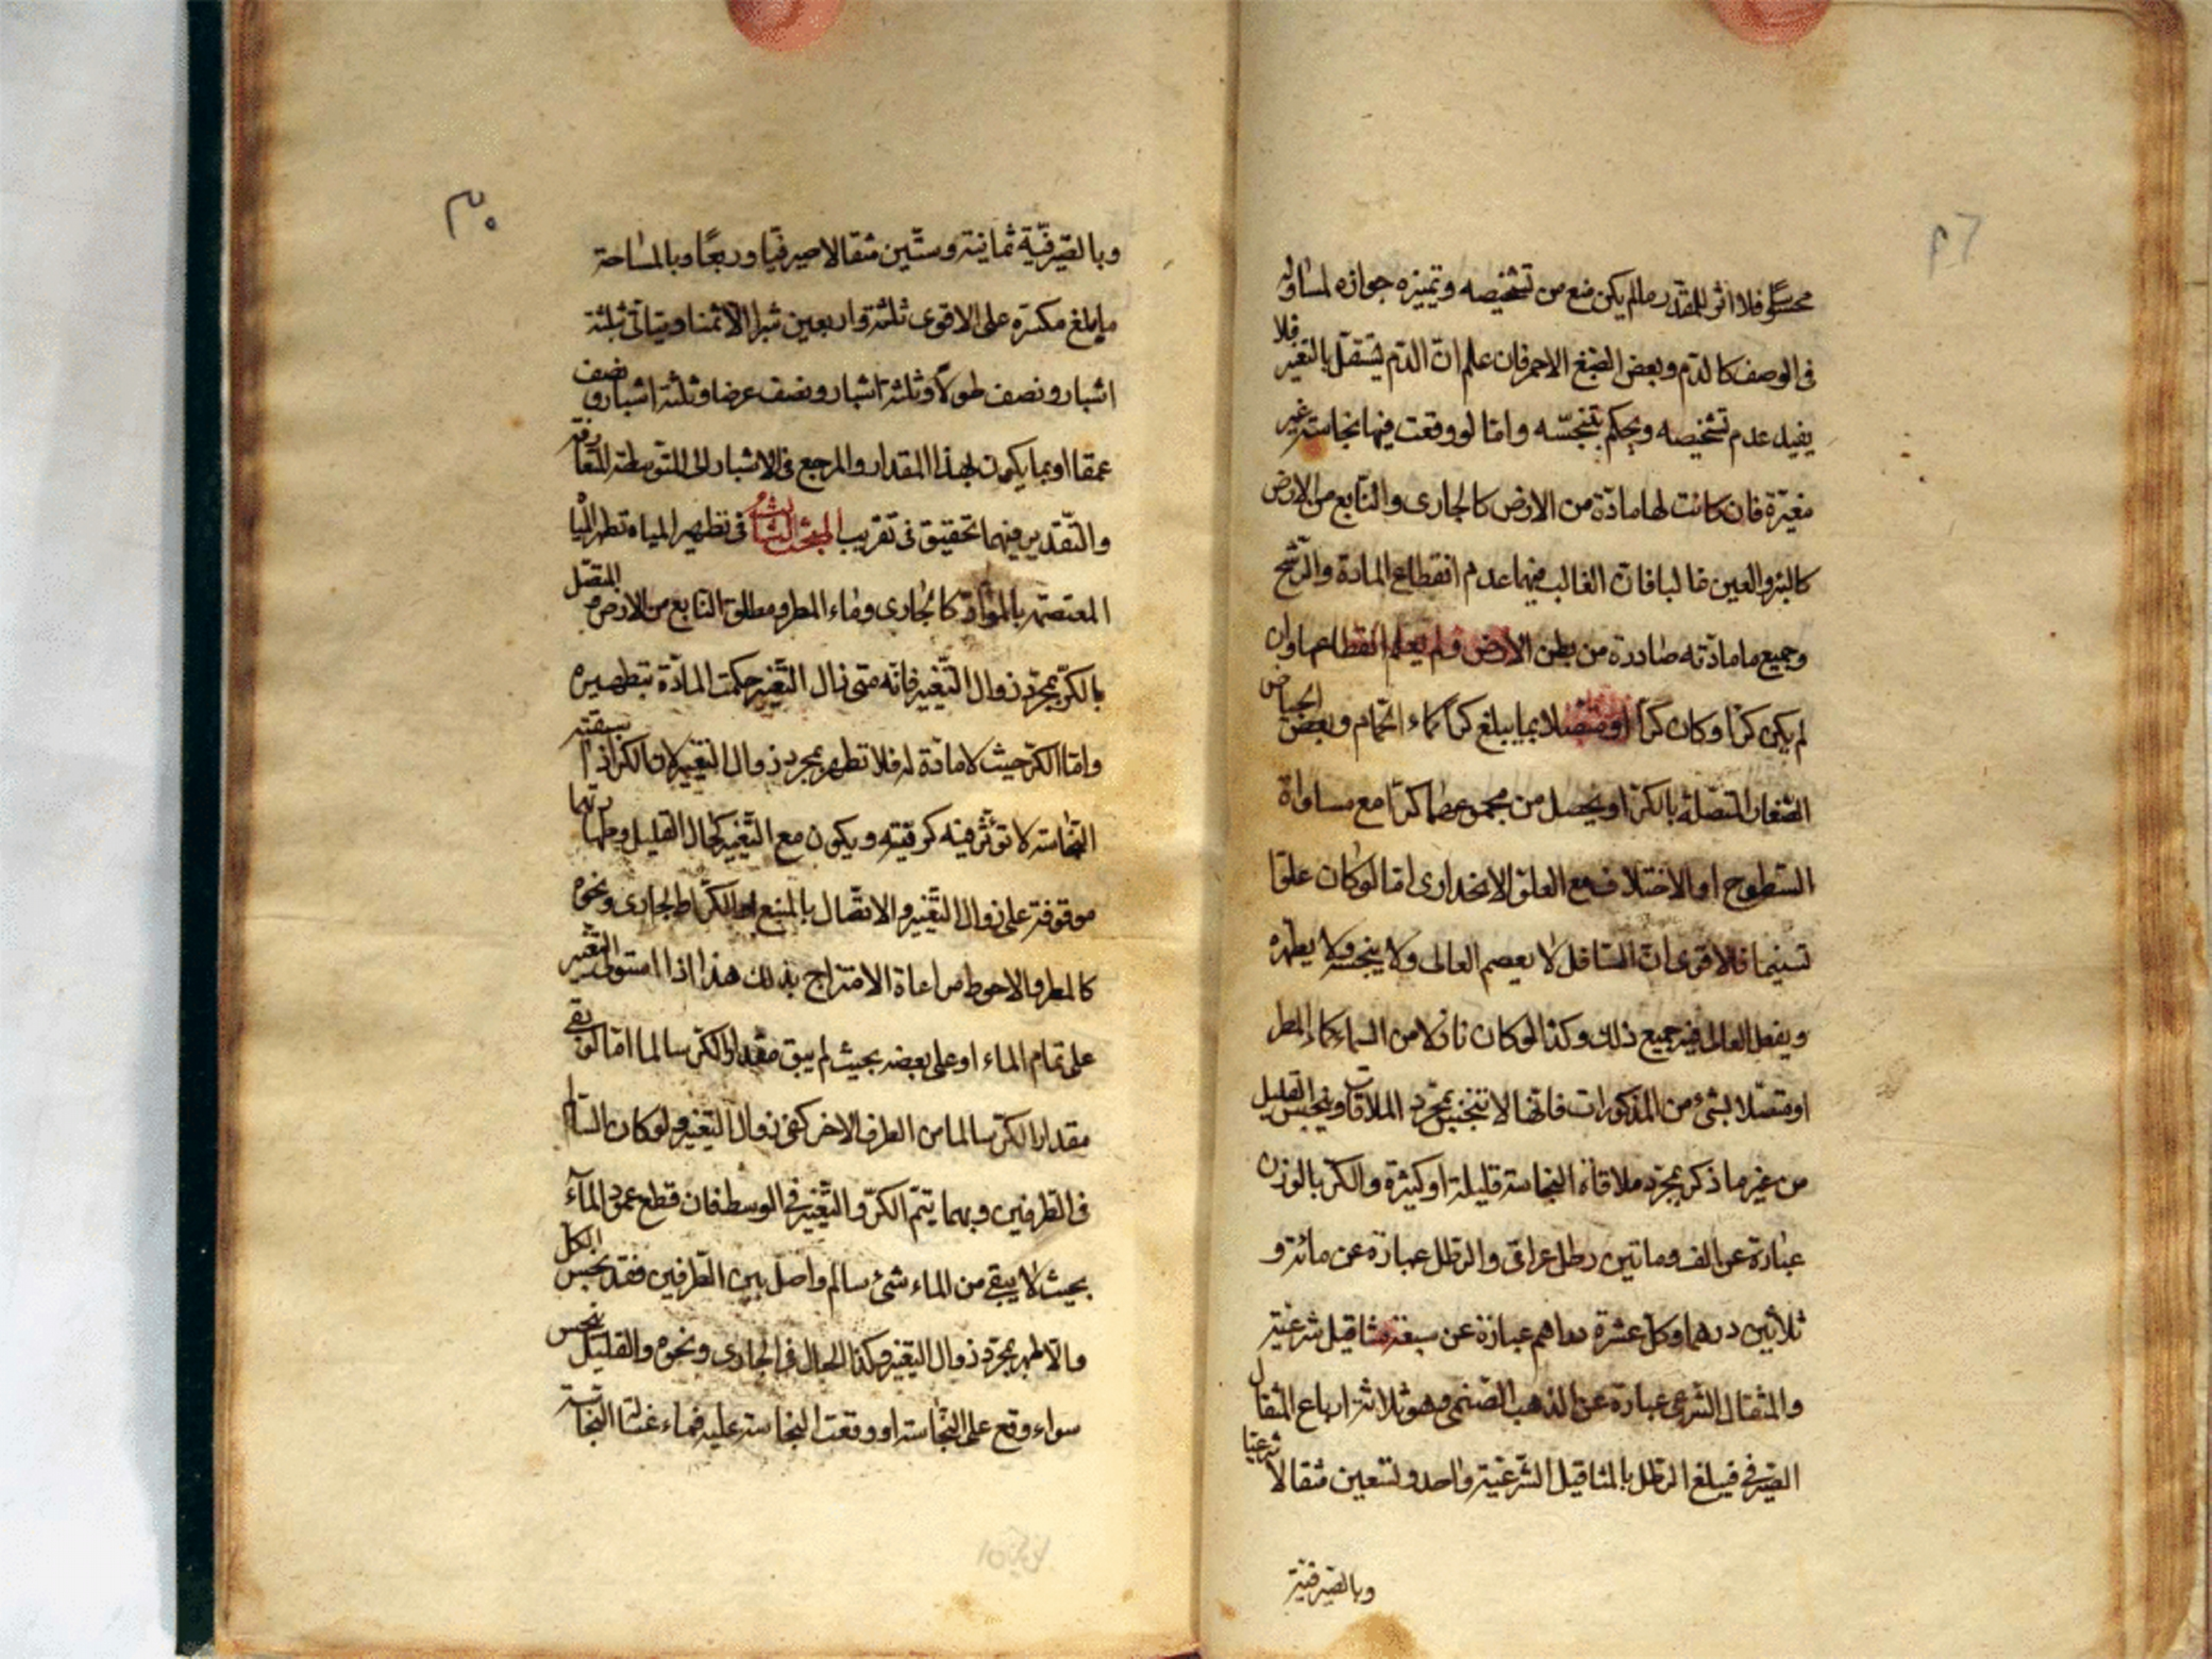 ٢٩
محسوسا فلا اثر للمقدر ما لم يكن منع من تشخيصه وتميزه جوازه لمساواته
فى الوصف كالدم وبعض الصبغ الاحمر فان علم ان الدم يستقل بالتغير فلا
يفيد عدم تشخيصه ويحكم بتنجسه واما لو وقعت فيها نجاسة غير
مغيرة فان كانت لها مادة من الارض كالجارى والنابع من الارض
كالبئر والعين غالبا فان الغالب فيهما عدم انقطاع المادة والرشح
وجميع ما مادته صادرة من بطن الارض ولم يعلم انقطاعها وان
لم يكن كرا وكان كرا او متصلا بما يبلغ كرا كماء الحمام وبعض الحياض
الصغار المتصلة بالكر او يحصل من مجموعها كرا مع مساواة
السطوح او الاختلاف مع العلو الانحدارى اما لو كان علوا
تسنيما فالاقوى ان السافل لا يعصم العالى ولا ينجسه ولا يطهره
ويفعل العالى فيه جميع ذلك وكذا لو كان نازلا من السماء كماء المطر
او متصلا بشئ من المذكورات فانها لا تتنجس بمجرد الملاقات وينجس القليل
من غير ما ذكر بمجرد ملاقاة النجاسة قليلة او كثيرة والكر بالوزن
عبارة عن الف وماتين رطل عراقى والرطل عبارة عن مائة و
ثلاثين درهما وكل عشرة دراهم عبارة عن سبعة مثاقيل شرعية
والمثقال الشرعى عبارة عن الذهب الصنمى وهو ثلاثة ارباع المثقال
الصيرفى فيبلغ الرطل بالمثاقيل الشرعية واحد وتسعين مثقالا شرعيا
وبالصيرفية
٣٠
وبالصيرفية ثمانية وستين مثقالا صيرفيا وربعا وبالمساحة
ما يبلغ مكسره على الاقوى ثلثة واربعين شبرا الا ثمنا ويتاتى بثلثة
اشبار ونصف طولا وثلثة اشبار ونصف عرضا وثلثة اشبار ونصف
عمقا او بما يكون بهذا المقدار والمرجع فى الاشبار الى المتوسطة المتعارفة
والتقدير فيهما تحقيق فى تقريب المبحث الثالث فى تطهير المياه تطهر المياه
المعتصمة بالمواد كالجارى وماء المطر ومطلق النابع من الارض والمتصل
بالكر بمجرد زوال التغير فانه متى زال التغير حكمت المادة بتطهيره
واما الكر حيث لا مادة له فلا تطهر بمجرد زوال التغير لان الكر اذا سبقته
النجاسة لا تؤثر فيه كريته ويكون مع التغير كحال القليل وطهارتهما
موقوفة على زوال التغير والاتصال بالمنبع او الكر او الجارى ونحوه
كالمطر والاحوط مراعاة الامتزاج بذلك هذا اذا استولى التغير
على تمام الماء او على بعضه بحيث لم يبق مقدار الكر سالما اما لو بقى
مقدار الكر سالما من الطرف الاخر كفى زوال التغير ولو كان السالم
فى الطرفين وبهما يتم الكر والتغير فى الوسط فان قطع عمود الماء
بحيث لا يبقى من الماء شئ سالم واصل بين الطرفين فقد نجس الكل
والا طهر بمجرد زوال التغير وكذا الحال فى الجارى ونحوه والقليل نجس
سواء وقع على النجاسة او وقعت النجاسة عليه فماء غسالة النجاسة